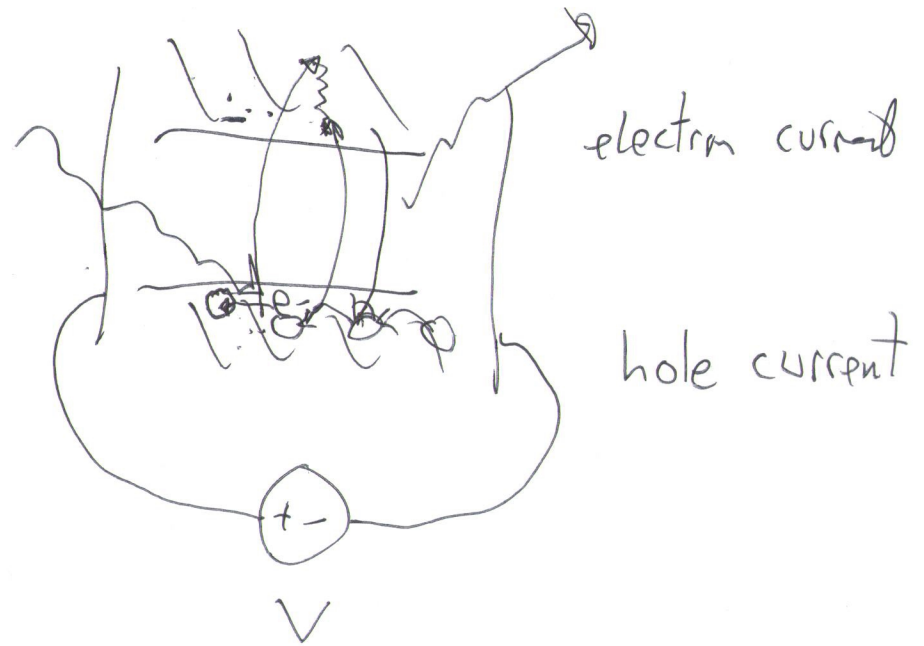 electron current
e-
h
hole current
+ -
V